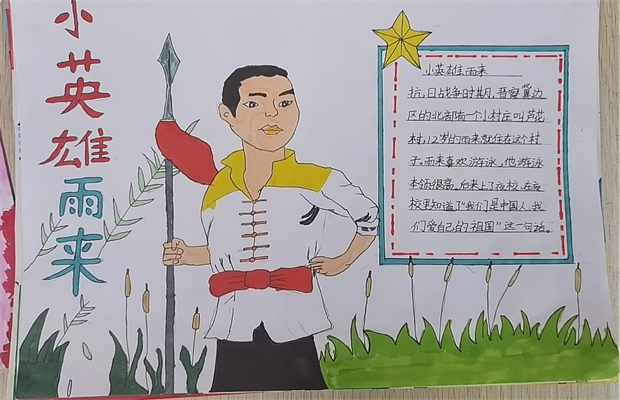 小英雄雨来
小英雄雨来
抗日战争时期，晋察冀边
区的北部有一个小村庄叫芦花
村，12岁的雨来就住在这个村
子。雨来喜欢游泳，他游泳
本领很高。后来上了夜校，在夜
校里知道了“我们是中国人，我
们爱自己的祖国”这一句话。